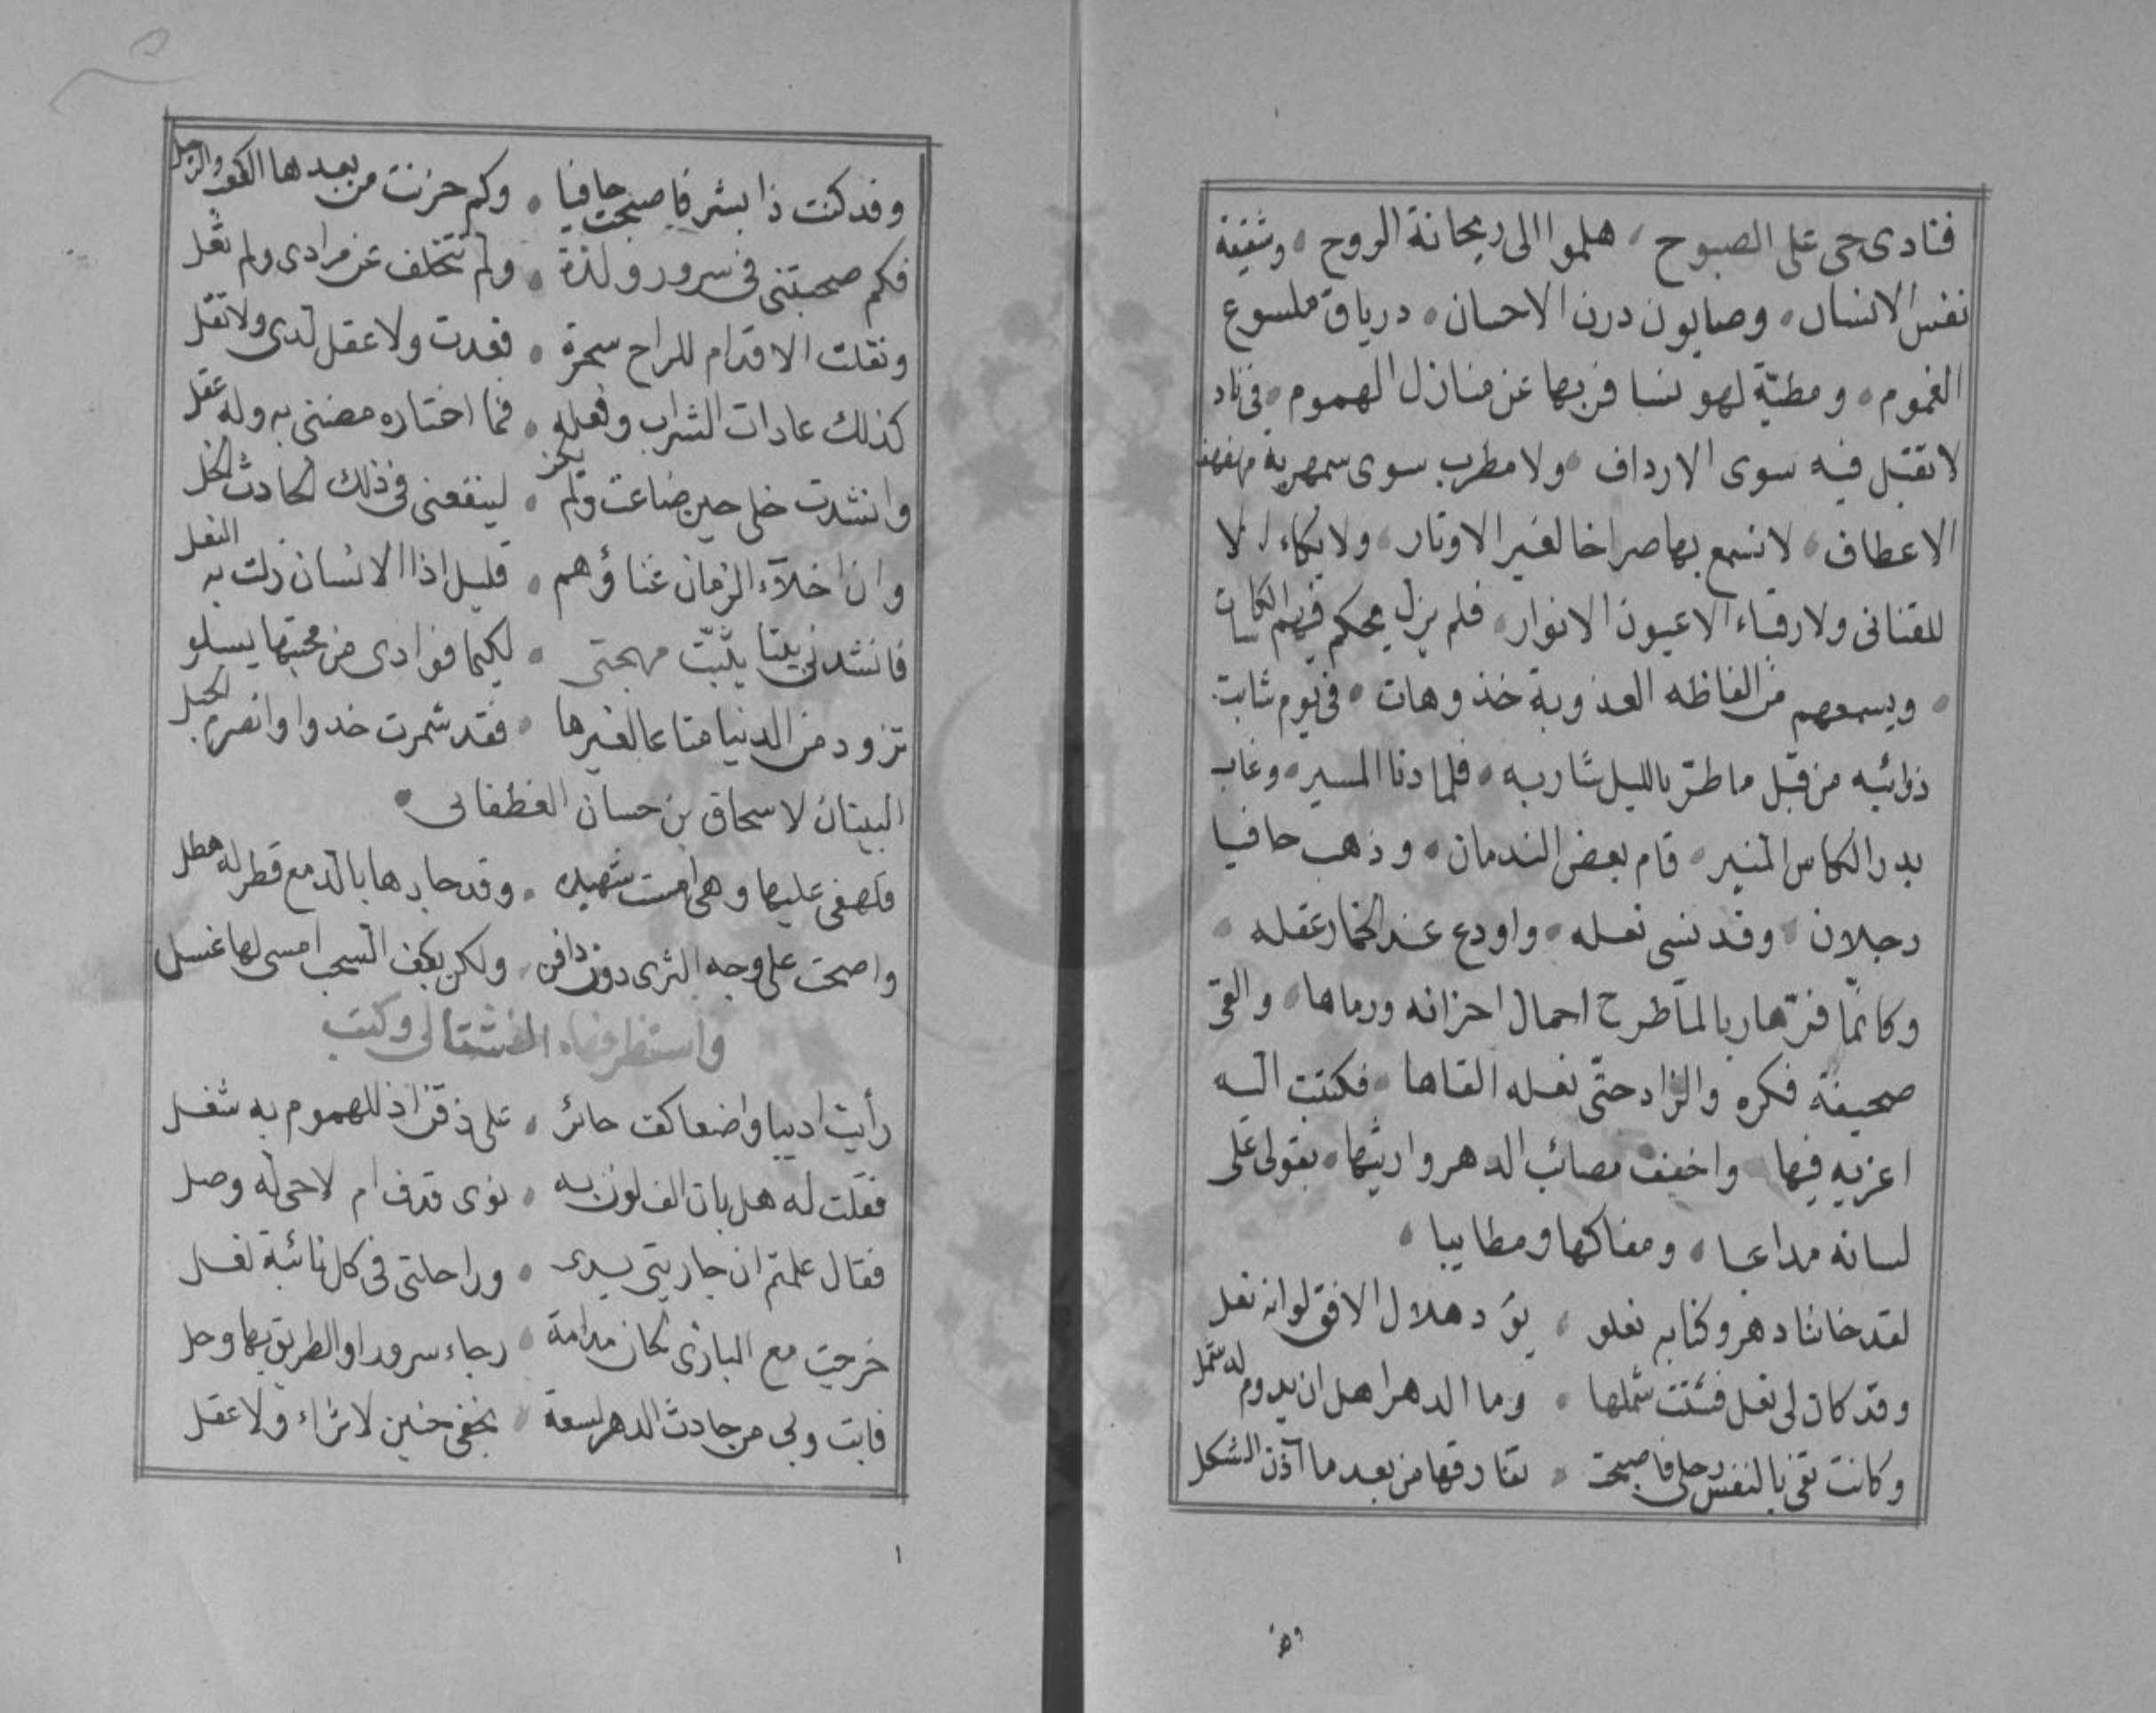 فنادى حى على الصبوح ، هلموا الى ريحانة الروح ، وشقيقة
نفس الانسان ، وصابون درن الاحسان ، درياق ملسوع
الغموم ، ومطيّة لهو نسافر بها عن منازل الهموم ، فى ناد
لا يقتبل فيه سوى الارداف ، ولا مطرب سوى سمهرية مهفهفة
الاعطاف ، لا نسمع بها صراخا لغير الاوتار ، ولا بكاء الا
للقنانى ولا رقباء الا عيون الانوار ، فلم يزل يحكم فيهم الكاسات
، ويسمعهم من الفاظه العذوبة خذ وهات ، فى يوم شابت
ذوائبه من قبل ما طرّ بالليل شاربه ، فلما دنا المسير ، وغاب
بدر الكاس المنير ، قام بعض الندمان ، وذهب حافيا
رجلان ، وقد نسى نعله ، واودع عند الخمار عقله ،
وكانما فرّ هاربا لما طرح احمال احزانه ورماها ، والقى
صحيفة فكره والزاد حتى نعله القاها ، فكتبت اليه
اعزيه فيها واخفف مصائب الدهر وارثيها ، بقولى على
لسانه مداعبا ، ومفاكها ومطايبا ،
لقد خاننا دهر وكنا به نعلو ، يود هلال الافق لو انه نعل
وقد كان لى نعل فشتت شملها ، وما الدهر اهل ان يدوم له شمل
وكانت تقى بالنفس رجلى فاصبحت ، تفارقها من بعد ما آذن الشكل
وهز
وقد كنت ذا بشر فاصبحت حافيا ، وكم حزنت من بعدها الكف والرجل
فكم صحبتنى فى سرور ولذة ، ولم تتخلف عن مرادى ولم تغل
ونقلت الاقدام للراح سحرة ، فعدت ولا عقل لدى ولا نقل
كذلك عادات الشراب وفعله ، فما اختاره مضنى به وله عقل
وانشدت خلى حين ضاعت ولم يكن ، لينفعنى فى ذلك الحادث الخل
وان اخلاء الزمان غناؤهم ، قليل اذا الانسان زلت به النعل
فانشدنى بيتا يثبّت مهجتى ، لكيما فوادى من محبتها يسلو
تزود من الدنيا متاعا لغيرها ، فقد شمرت خدوا وانصرم الحبل
البيتان لاسحاق بن حسان الغطفانى ،
فلهفى عليها وهى امست شهيدة ، وقد جادها بالدمع قطر له هطل
واضحت على وجه الثرى دون دافن ، ولكن بكف السحب امسى لها غسل
واستظرفها المنشتالى وكتب
رأيت اديبا واضعا كف حائر ، على ذقن اذ للهموم به شغل
فقلت له هل بان الف لون به ، نوى قذف ام لاحى له وصل
فقال علمتم ان جاريتى يدى ، وراحلتى فى كل نائبة نعل
خرجت مع البازى لحان مدامة ، رجاء سرور او الطريق بها وحل
فابت ولى من حادث الدهر لسعة ، بخفى حنين لا ثراء ولا عقل
١